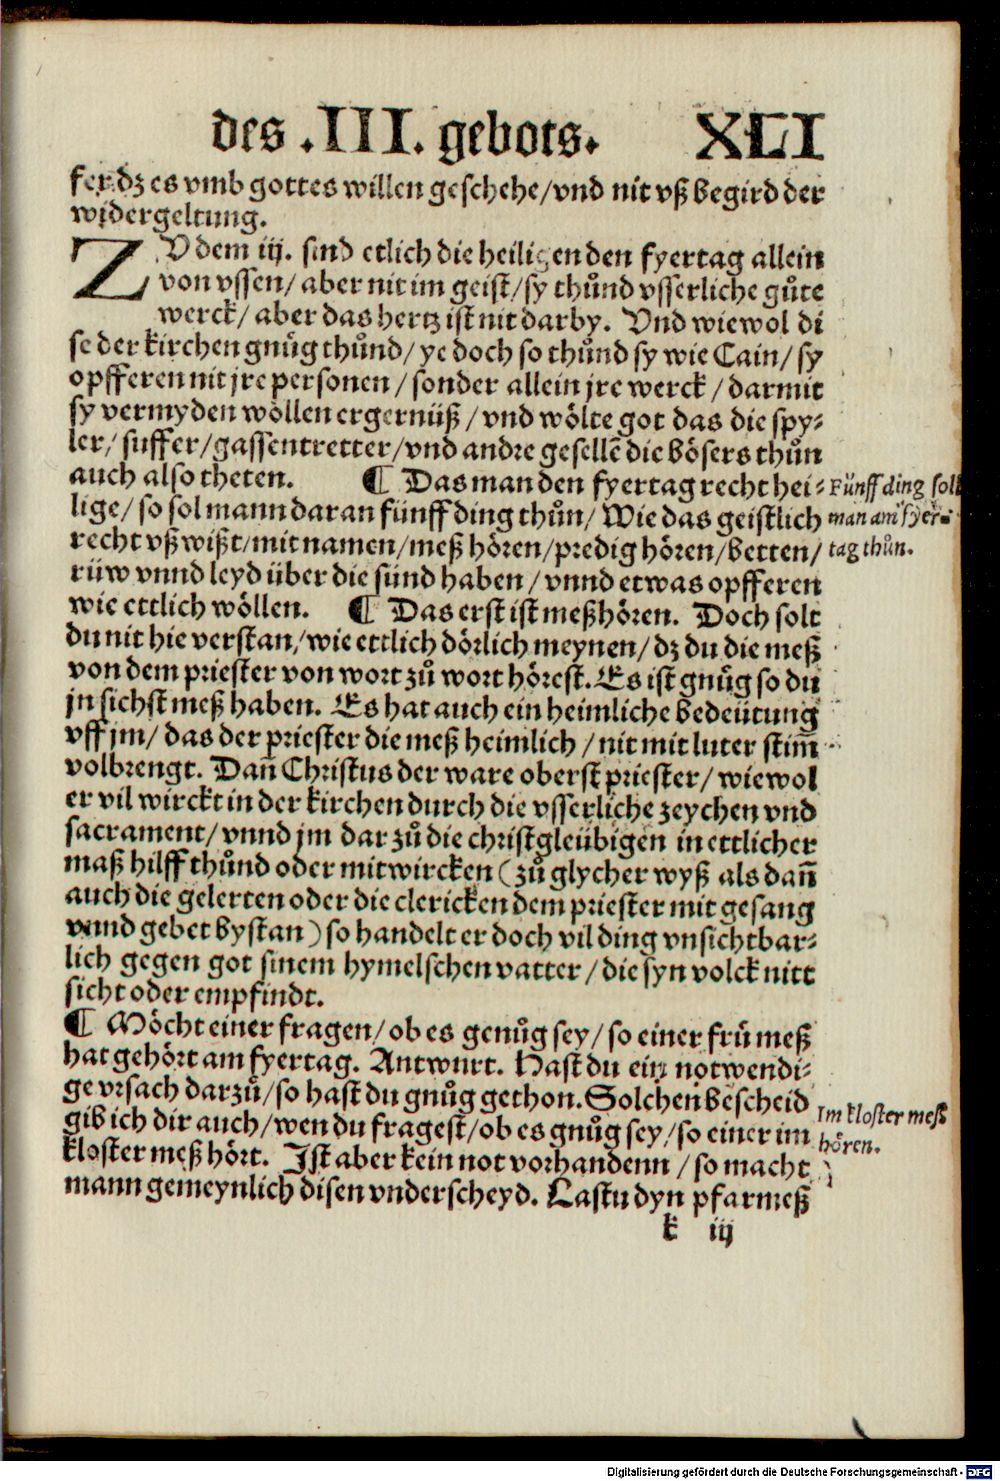 des .III. gebots. XLI
fer dz es vmb gottes willen geschehe/vnd nit vß begird der
widergeltung.
ZV dem iij. sind etlich die heiligen den fyertag allein
von vssen/ aber nit im geist/sy thůnd vsserliche gůte
werck/ aber das hertz ist nit darby. Vnd wiewol di
se der kirchen gnůg thůnd/ ye doch so thůnd sy wie Cain/ sy
opfferen nit jre personen/sonder allein jre werck/darmit
sy vermyden wöllen ergernüß/vnd wölte got das die spy⸗
ler/ suffer/gassentretter/vnd andre gesellē die bösers thůn
auch also theten. ¶ Das man den fyertag recht hei⸗
lige/so sol mann daran fünff ding thůn/ Wie das geistlich
recht vß wißt/mit namen/meß hören/predig hören/betten/
rüw vnnd leyd über die sünd haben/vnnd etwas opfferen
wie ettlich wöllen. ¶ Das erst ist meßhören. Doch solt
du nit hie verstan/wie ettlich dörlich meynen/dz du die meß
von dem priester von wort zů wort hörest. Es ist gnůg so du
jn sichst meß haben. Es hat auch ein heimliche bedeütung
vff jm/ das der priester die meß heimlich/nit mit luter stim̄
volbrengt. Dan̄ Christus der ware oberst priester/wiewol
er vil wirckt in der kirchen durch die vsserliche zeychen vnd
sacrament/vnnd jm dar zů die christgleübigen in ettlicher
maß hilff thůnd oder mitwircken (zů glycher wyß als dan̄
auch die gelerten oder die clericken dem priester mit gesang
vnnd gebet bystan) so handelt er doch vil ding vnsichtbar⸗
lich gegen got sinem hymelschen vatter/die syn volck nitt
sicht oder empfindt.
¶ Möcht einer fragen/ob es genůg sey/so einer frů meß
hat gehört am fyertag. Antwurt. Hast du ein notwendi⸗
ge vrsach darzů/so hast du gnůg gethon. Solchen bescheid
gib ich dir auch/wen du fragest/ob es gnůg sey/so einer im
kloster meß hört. Ist aber kein not vorhandenn/so macht
mann gemeynlich disen vnderscheyd. Lastu dyn pfarmeß
k iij
Fünff ding soll
man am fyer⸗
tag thůn.
Im kloster meß
hören.
Digitalisierung gefördert durch die Deutsche Forschungsgemeinschaft - DFG